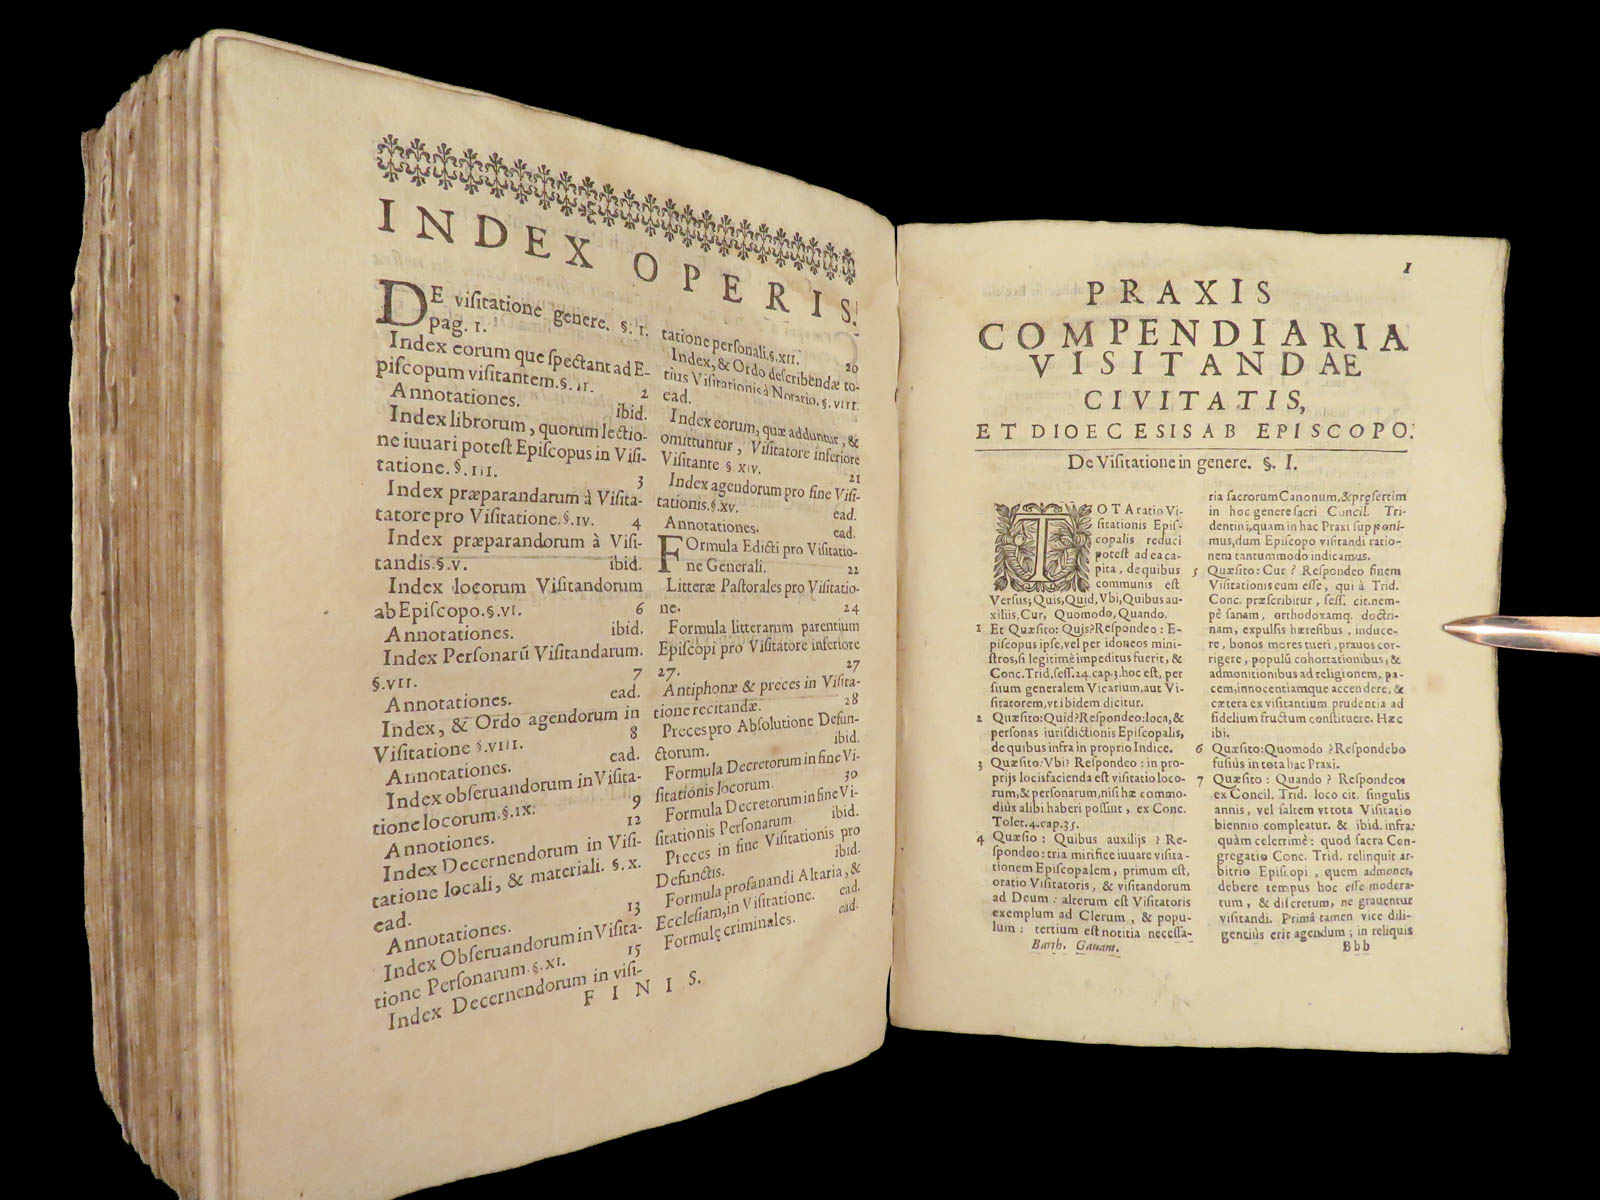 INDEX OPERIS.
DE visitatione genere. §. I.
pag. I.
Index eorum que spectant ad E-
piscopum visitantem. §. II. 2
Annotationes. ibid.
Index librorum, quorum lectio-
ne iuuari potest Episcopus in Visi-
tatione. §. III. 3
Index præparandarum à Visita-
tatore pro Visitatione. §. IV. 4
Index præparandorum à Visi-
tandis. §. V. ibid.
Index locorum Visitandorum
ab Episcopo. §. VI. 6
Annotationes. ibid.
Index Personarū Visitandarum.
§. VII. 7
Annotationes. ead.
Index, & Ordo agendorum in
Visitatione §. VIII. 8
Annotationes. ead.
Index obseruandorum in Visita-
tione locorum. §. IX. 9
Annotiones. 12
Index Decernendorum in Visi-
tatione locali, & materiali. §. X.
ead.
Annotationes. 13
Index Obseruandorum in Visita-
tione Personarum. §. XI. 15
Index Decernendorum in visi-
tatione personali. §. XII. 20
Index, & Ordo describendæ to-
tius Visitationis à Notario. §. VIII.
ead.
Index eorum, quæ adduntur, &
omittuntur, Visitatore inferiore
Visitante §. XIV. 21
Index agendorum pro fine Visi-
tationis. §. XV. ead.
Annotationes. ead.
FOrmula Edicti pro Visitatio-
ne Generali. 22
Litteræ Pastorales pro Visitatio-
ne. 24
Formula litterarum parentium
Episcopi pro Visitatore inferiore
27. 27
Antiphonæ & preces in Visita-
tione recitandæ. 28
Preces pro Absolutione Defun-
ctorum. ibid.
Formula Decretorum in fine Vi-
sitationis locorum. 30
Formula Decretorum in fine Vi-
sitationis Personarum. ibid.
Preces in fine Visitationis pro
Defunctis. ibid.
Formula profanandi Altaria, &
Ecclesiam, in Visitatione. ead.
Formulę criminales. ead.
FINIS.
1
PRAXIS
COMPENDIARIA
VISITANDAE
CIVITATIS,
ET DIOECESIS AB EPISCOPO.
De Visitatione in genere. §. I.
TOTA ratio Vi-
sitationis Epis-
copalis reduci
potest ad ea ca-
pita, de quibus
communis est
Versus; Quis, Quid, Vbi, Quibus au-
xiliis, Cur, Quomodo, Quando.
1 Et Quæsito: Quis? Respondeo: E-
piscopus ipse, vel per idoneos mini-
stros, si legitimè impeditus fuerit, &
Conc. Trid. sess. 24. cap. 3. hoc est, per
suum generalem Vicarium, aut Vi-
sitatorem, vt ibidem dicitur.
2 Quæsito: Quid? Respondeo: loca, &
personas iurisdictionis Episcopalis,
de quibus infra in proprio Indice.
3 Quæsito: Vbi? Respondeo: in pro-
prijs locis facienda est visitatio loco-
rum, & personarum, nisi hæ commo-
diùs alibi haberi possint, ex Conc.
Tolet. 4. cap. 35.
4 Quæsio: Quibus auxilijs? Re-
spondeo: tria mirifice iuuare visita-
tionem Episcopalem, primum est,
oratio Visitatoris, & visitandorum
ad Deum: alterum est Visitatoris
exemplum ad Clerum, & popu-
lum: tertium est notitia necessa-
Barth. Gauant.
ria sacrorum Canonum, & pręsertim
in hoc genere sacri Concil. Tri-
dentini, quam in hac Praxi supponi-
mus, dum Episcopo visitandi ratio-
nem tantummodo indicamus.
5 Quæsito: Cur? Respondeo finem
Visitationis eum esse, qui à Trid.
Conc. præscribitur, sess. cit. nem-
pè sanam, orthodoxamq. doctri-
nam, expulsis hæresibus, induce-
re, bonos mores tueri, prauos cor-
rigere, populū cohortationibus, &
admonitionibus ad religionem, pa-
cem, innocentiamque accendere, &
cætera ex visitantium prudentia ad
fidelium fructum constituere. Hæc
ibi.
6 Quæsito: Quomodo? Respondebo
fusiùs in tota hac Praxi.
7 Quæsito: Quando? Respondeo
ex Concil. Trid. loco cit. singulis
annis, vel saltem vt tota Visitatio
biennio compleatur. & ibid. infra:
quàm celerrimè: quod sacra Con-
gregatio Conc. Trid. relinquit ar-
bitrio Episcopi, quem admonet,
debere tempus hoc esse modera-
tum, & discretum, ne grauentur
visitandi. Primâ tamen vice dili-
gentiùs erit agendum; in reliquis
Bbb